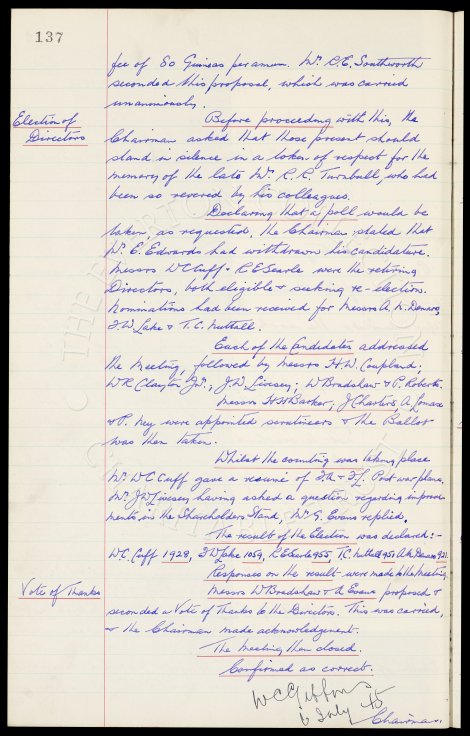 137
fee of 80 Guineas per annum. Mr. R.E. Southworth
seconded this proposal, which was carried
unanimously.
Election of
Directors
Before proceeding with this, the
Chairman asked that those present should
stand in silence in a token of respect for the
memory of the late Mr. R.R. Turnbull, who had
been so revered by his colleagues.
Declaring that a poll would be
taken, as requested, the Chairman stated that
Mr. E. Edwards had withdrawn his candidature.
Messrs W C Cuff & R E Searle were the retiring
Directors, both eligible & seeking re-election.
Nominations had been received for Messrs A. N. Denaro,
F.W. Lake & T.C. Nuttall.
Each of the Candidates addressed
the Meeting, followed by Messrs H.W. Coupland;
W R Clayton Jnr.; J W Livesey; W Bradshaw & P. Roberts.
Messrs H H Barker, J Charters, A Lomax
& P. Ney were appointed scrutineers & the Ballot
was then taken.
Whilst the counting was taking place
Mr. W C Cuff gave a resumé of F.A & F.L. Post war plans.
Mr. J W Livesey having asked a question regarding improve-
ments in the Shareholders Stand, Mr. G. Evans replied.
The result of the Election was declared:-
W C. Cuff 1928, F W Lake 1059, R E Searle 955, T.C. Nuttall 951 A N. Denaro 921.
Responses on the result were made to the Meeting.
Vote of Thanks
Messrs W Bradshaw & A Evans proposed &
seconded a Vote of Thanks to the Directors. This was carried,
& the Chairman made acknowledgement.
The Meeting then closed.
Confirmed as correct.
W C Gibbins
6 July 45
Chairman.